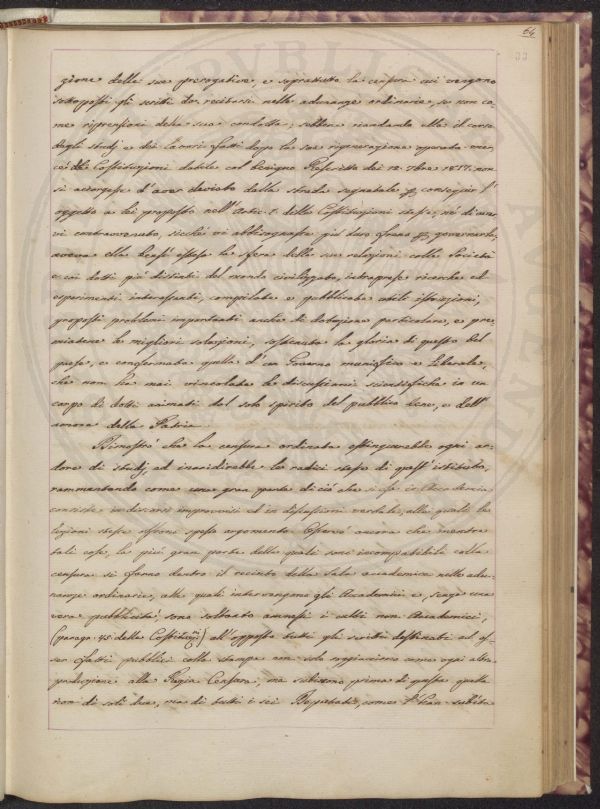 64
33
zione delle sue prerogative, e soprattutto la censura cui vengono
sottoposti gli scritti da recitarsi nelle adunanze ordinarie, se non co-
me riprensioni della sua condotta; sebbene riandando ella il corso
degli studj e di lavori fatti dopo la sua rigenerazione operata mer-
cè le Costituzioni datele col benigno Rescritto dei 12. 1817. non
si accorgesse d'aver deviato dalla strada segnatale per conseguir l'
oggetto a lei proposto nell'Artic. 1. delle Costituzioni stesse, nè di aver-
vi contravvenuto, sicchè vi abbisognasse più duro freno per governarla,
aveva ella bensì estesa la sfera delle sue relazioni colle Società
e coi dotti più distinti del mondo civilizzato, intraprese ricerche ed
esperimenti interessanti, compilate e pubblicate utili istruzioni,
proposti problemi importanti anche di dotazione particolare, e pre-
miatene le migliori soluzioni, sostenuta la gloria di questo bel
paese, e confermata quella d'un Governo munifico e Liberale,
che non ha mai vincolate le discussioni scientifiche in un
corpo di dotti animati dal solo spirito del pubblico bene, e dell'
amore della Patria.
Dimostrò che la censura ordinata estinguerebbe ogni ar-
dore di studj, ed inaridirebbe la radici stesse di quest'istituto,
rammentando come una gran parte di ciò che si fa in Accademia
consiste in discorsi improvvisi ed in discussioni verbali, alle quali le
lezioni stesse offrono spesso argomento. Osservò ancora che mentre
tali cose, la più gran parte delle quali sono incompatibili colla
censura si fanno dentro il recinto della Sala accademica nelle adu-
nanze ordinarie, alle quali intervengono gli Accademici e, senza una
vera pubblicità sono soltanto ammessi i culti non Accademici,
(parag. 45 delle Costituzni) all'opposto tutti gli scritti destinati ad es-
ser fatti pubblici colle stampe non solo soggiacciono come ogni altra
produzione alla Regia Censura, ma subiscono prima di questa quella
non di soli due, ma di tutti i sei Deputati, come l'han subita